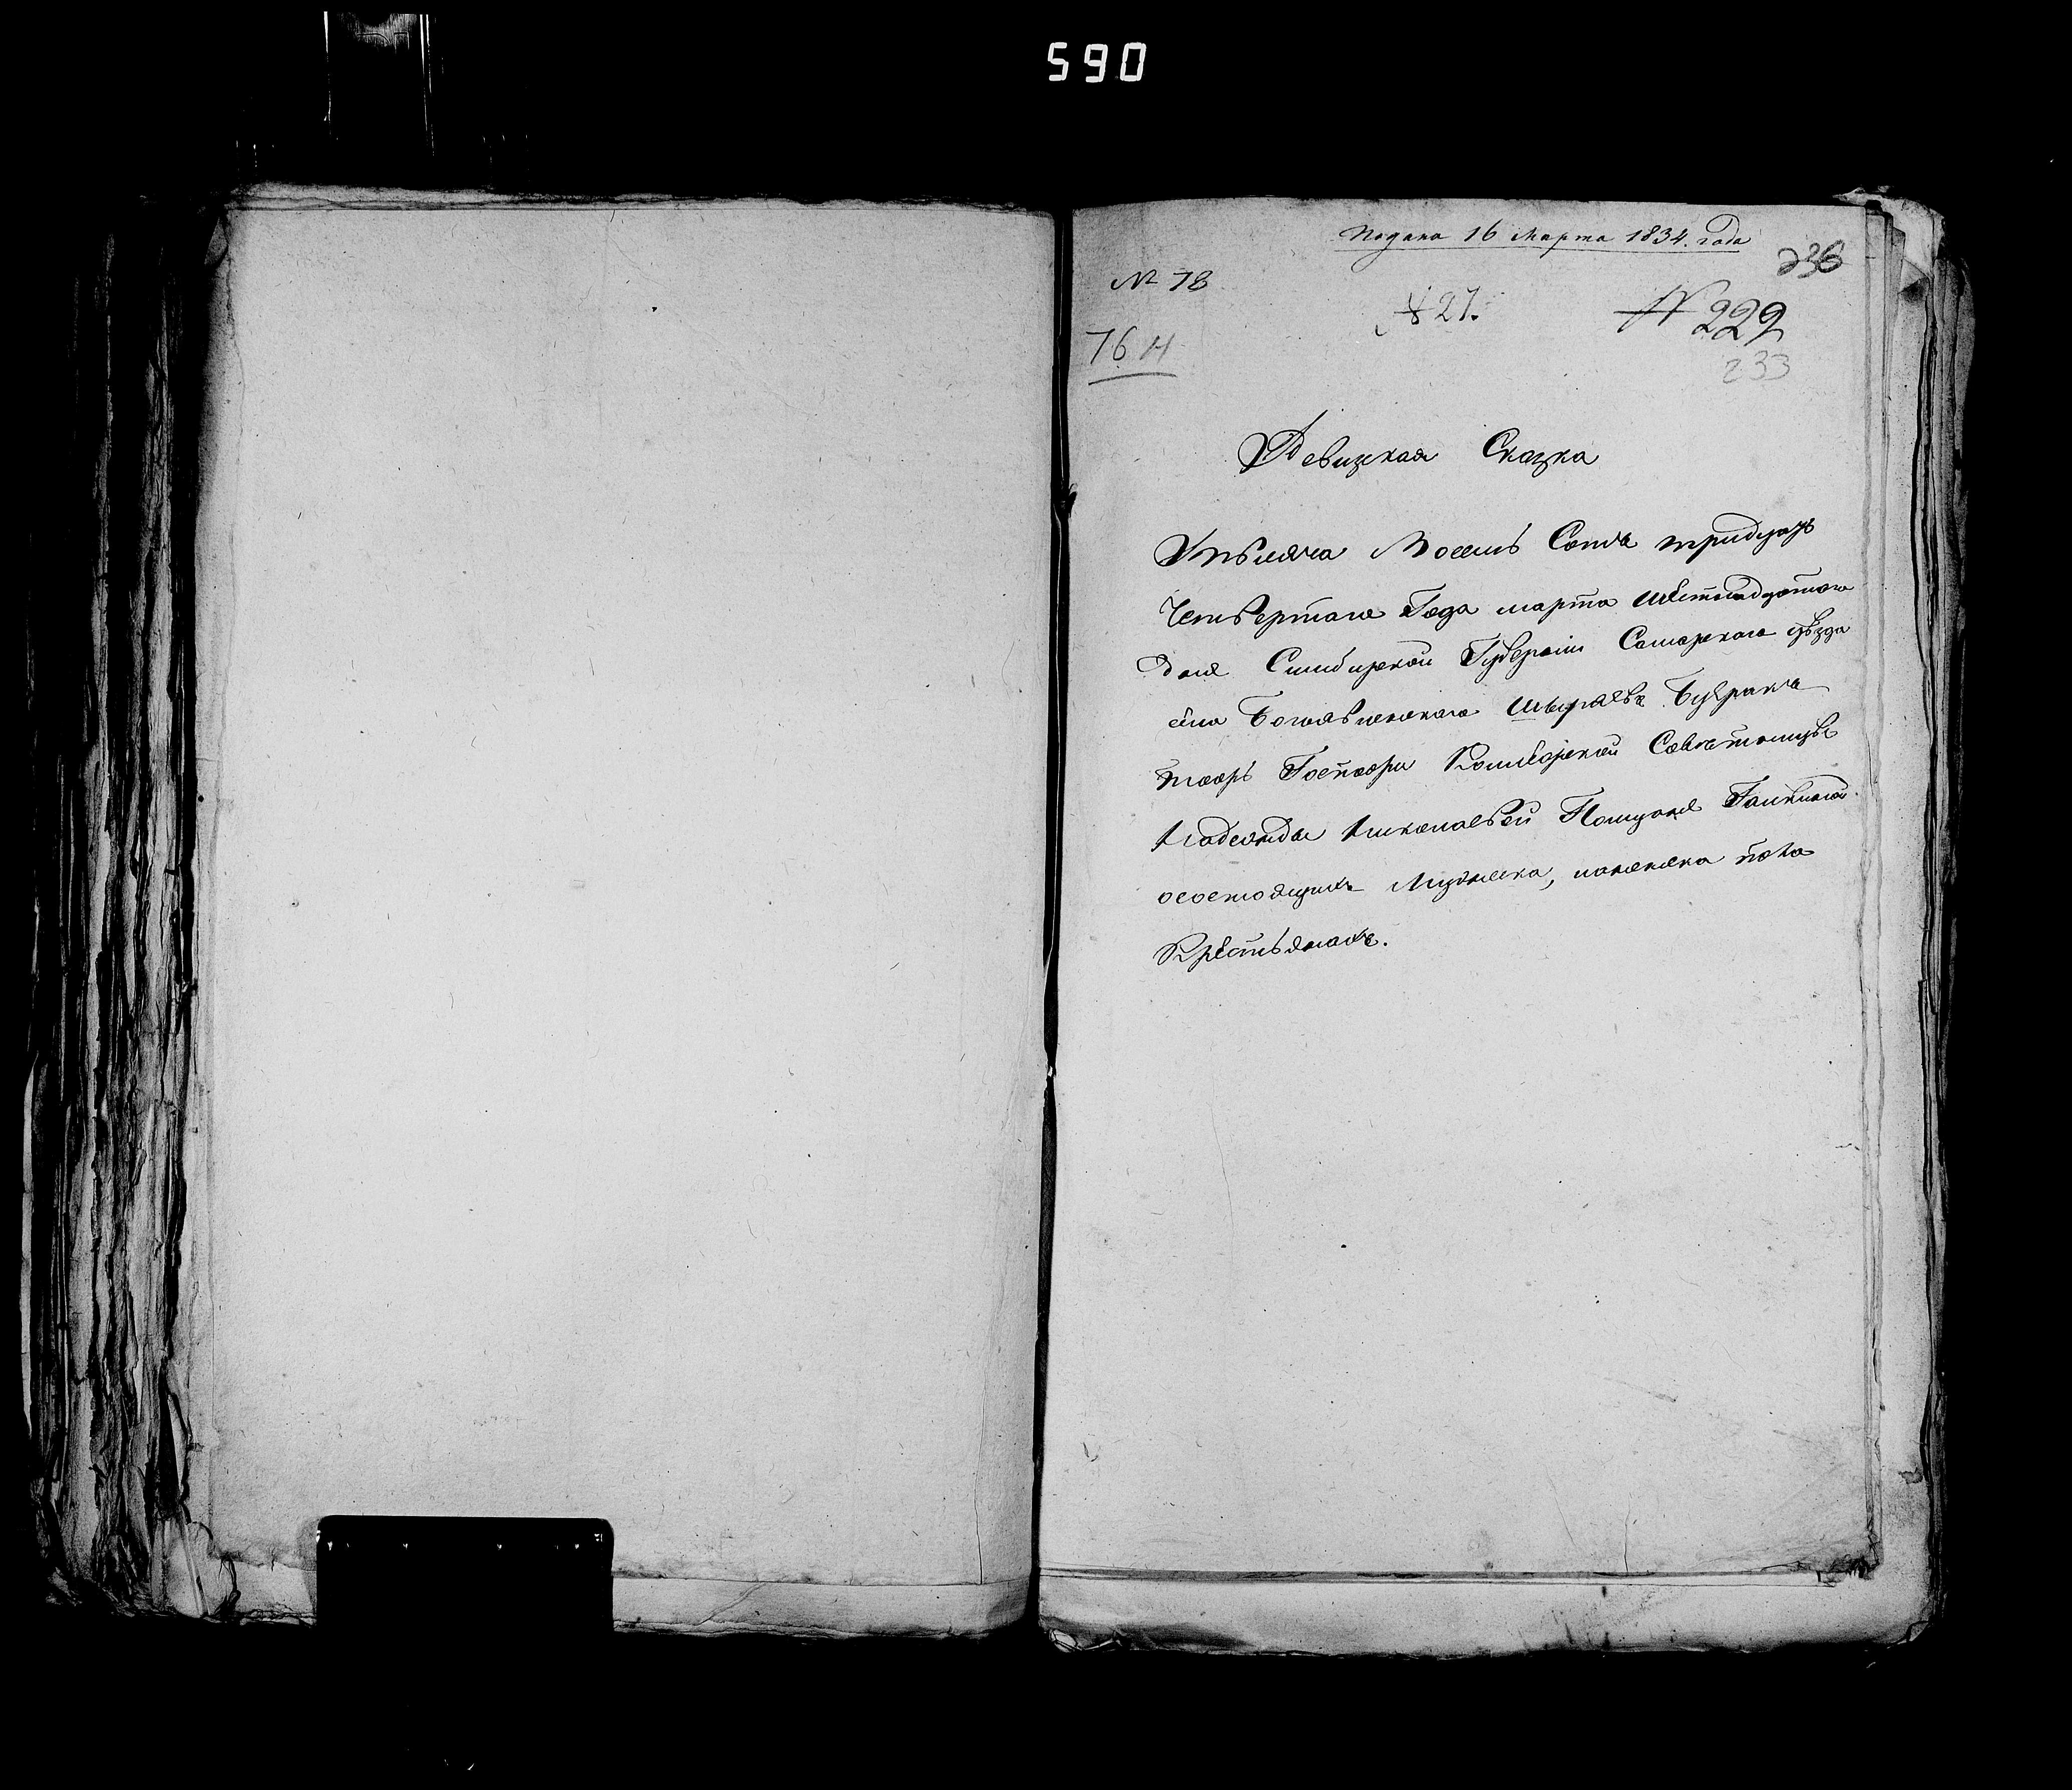 590
Подана 16 Марта 1834. года
236
№ 78
№ 21.
№ 229
76 н
233
Ревизская Сказка
Тысяча Восемь Сотъ тридцать
Четвертаго Года марта шестнадцатого
дня Симбирской Губернии Самарского уезда
села Богоявленского Буеракъ
тожъ Госпожи Советницы
Надежды Николаевой
осостоящихъ Мужеска, иженска пола
Крестьянахъ.